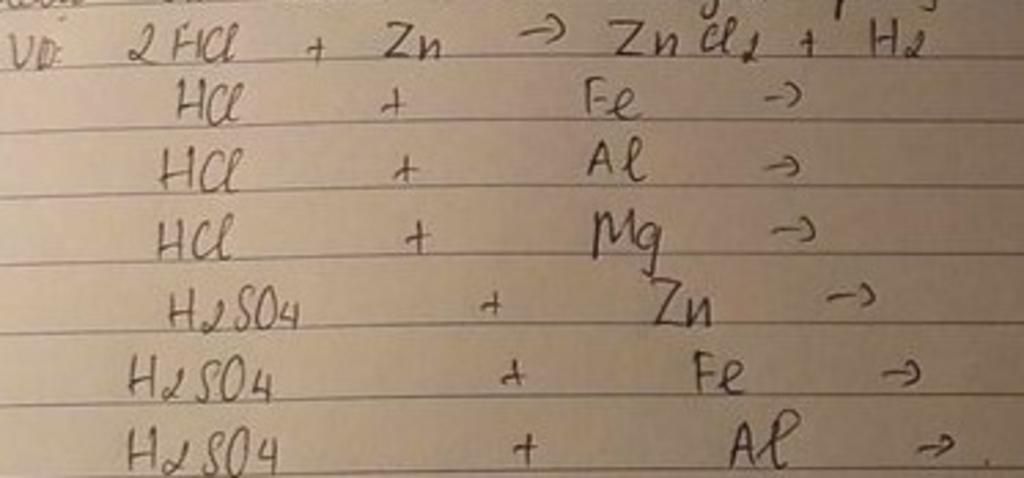 VD: 2HCl + Zn → ZnCl2 + H2
HCl + Fe →
HCl + Al →
HCl + Mg →
H2SO4 + Zn →
H2SO4 + Fe →
H2SO4 + Al →